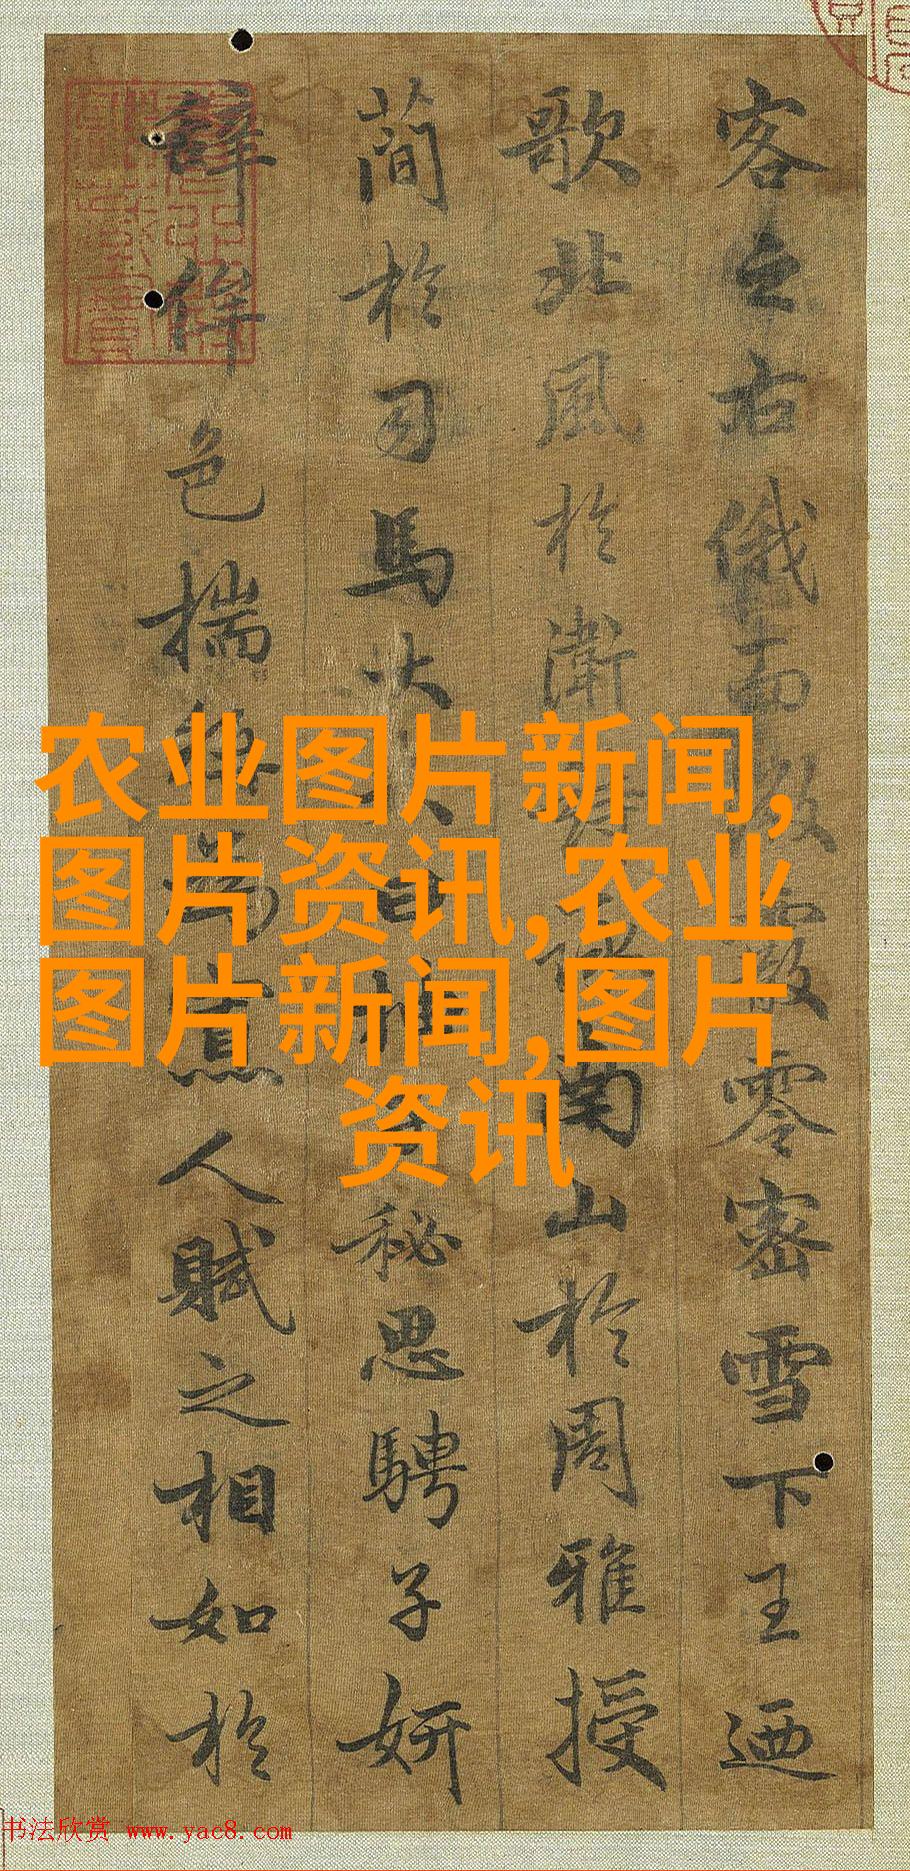 客之右俄而微霰零密雪下王迺
歌北風於衛南山於周雅授
簡於司馬大夫曰秘思騁子妍
辭侔色揣稱為寡人賦之相如於
农业图片新闻,
图片资讯,农业
图片新闻,图片
资讯
书法欣赏 www.yac8.com